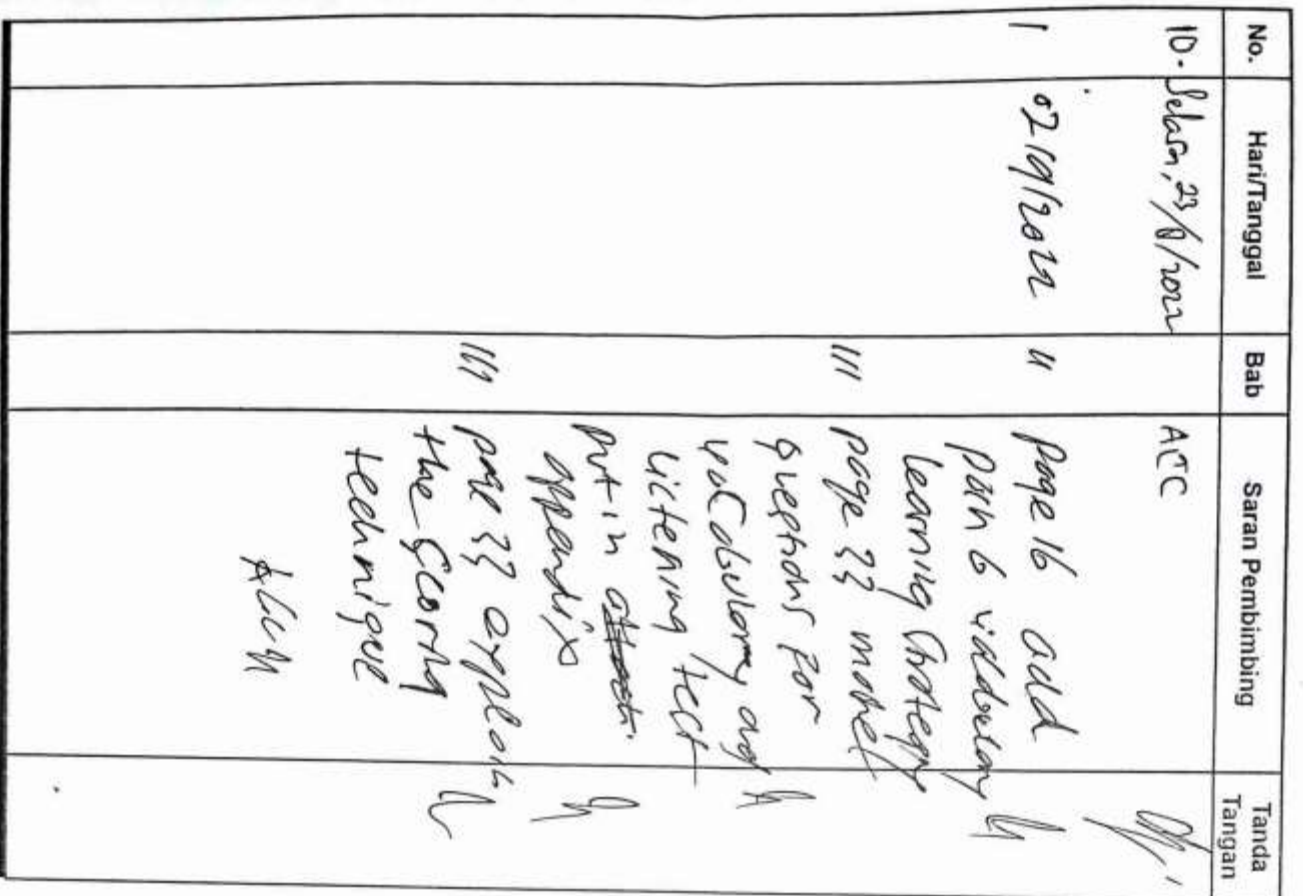 No. Hari/Tanggal Bab Saran Pembimbing Tanda Tangan
10. Selasa, 23/8/2022 ACC
1 02/9/2022 II page 16 add
learning strategy
III page 33 
questions for
vocabulary and
listening test
put in
appendix
III page 33 explain
the scoring
technique